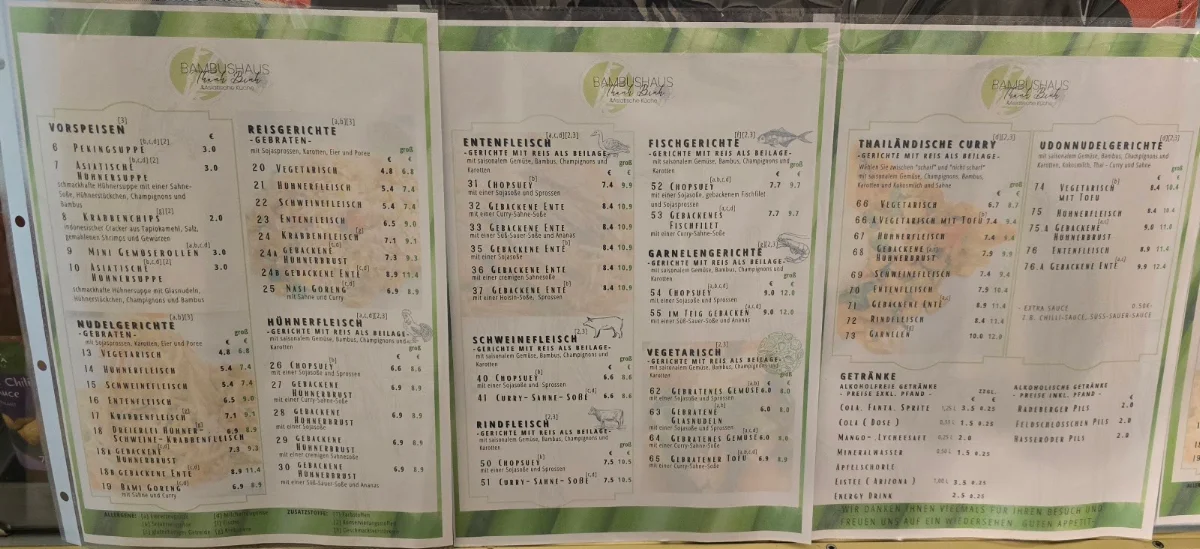 BAMBUSHAUS
Thanh Binh
Asiatische Küche
VORSPEISEN [3]
€
6 PEKINGSUPPE [b,c,d][2] 3.0
7 ASIATISCHE HÜHNERSUPPE [b,c,d][2] 3.0
schmackhafte Hühnersuppe mit einer Sahne-
Soße, Hühnerstückchen, Champignons und
Bambus
8 KRABBENCHIPS [g][2] 2.0
indonesischer Cracker aus Tapiokamehl, Salz,
gemahlenes Shrimps und Gewürzen
9 MINI GEMÜSEROLLEN [a,b,c,d] 3.0
10 ASIATISCHE HÜHNERSUPPE [b,c,d][2] 3.0
schmackhafte Hühnersuppe mit Glasnudeln,
Hühnerstückchen, Champignons und Bambus
NUDELGERICHTE [a,b][3]
-GEBRATEN-
mit Sojasprossen, Karotten, Eier und Poree
groß
€ €
13 VEGETARISCH 4.8 6.8
14 HÜHNERFLEISCH 5.4 7.4
15 SCHWEINEFLEISCH 5.4 7.4
16 ENTENFLEISCH 6.5 9.0
17 KRABBENFLEISCH [g] 7.1 9.1
18 DREIERLEI HÜHNER- SCHWEINE- KRABBENFLEISCH 6.9 8.9
18A GEBACKENE HÜHNERBRUST 7.3 9.3
18B GEBACKENE ENTE [c,d] 8.9 11.4
19 BAMI GORENG [c,d] 6.9 8.9
mit Sahne und Curry
REISGERICHTE [a,b][3]
-GEBRATEN-
mit Sojasprossen, Karotten, Eier und Porree
groß
€ €
20 VEGETARISCH 4.8 6.8
21 HÜHNERFLEISCH 5.4 7.4
22 SCHWEINEFLEISCH 5.4 7.4
23 ENTENFLEISCH 6.5 9.0
24 KRABBENFLEISCH [g] 7.1 9.1
24A GEBACKENE HÜHNERBRUST [c,d] 7.3 9.3
24B GEBACKENE ENTE [c,d] 8.9 11.4
25 NASI GORENG [c,d] 6.9 8.9
mit Sahne und Curry
HÜHNERFLEISCH [a,c,d][2,3]
-GERICHTE MIT REIS ALS BEILAGE-
mit saisonalem Gemüse, Bambus, Champignons und
Karotten
groß
€ €
26 CHOPSUEY [b] 6.6 8.6
mit einer Sojasoße und Sprossen
27 GEBACKENE HÜHNERBRUST 6.9 8.9
mit einer Curry-Sahne-Soße
28 GEBACKENE HÜHNERBRUST [b] 6.9 8.9
mit einer Sojasoße
29 GEBACKENE HÜHNERBRUST 6.9 8.9
mit einer cremigen Sahnesoße
30 GEBACKENE HÜHNERBRUST 6.9 8.9
mit einer Süß-Sauer-Soße und Ananas
BAMBUSHAUS
Thanh Binh
Asiatische Küche
ENTENFLEISCH [a,c,d][2,3]
-GERICHTE MIT REIS ALS BEILAGE-
mit saisonalem Gemüse, Bambus, Champignons und
Karotten
groß
€ €
31 CHOPSUEY [b] 7.4 9.9
mit einer Sojasoße und Sprossen
32 GEBACKENE ENTE 8.4 10.9
mit einer Curry-Sahne-Soße
33 GEBACKENE ENTE 8.4 10.9
mit einer Süß-Sauer-Soße und Ananas
35 GEBACKENE ENTE [b] 8.4 10.9
mit einer Sojasoße
36 GEBACKENE ENTE 8.4 10.9
mit einer cremigen Sahnesoße
37 GEBACKENE ENTE [b] 8.4 10.9
mit einer Hoisin-Soße, Sprossen
SCHWEINEFLEISCH [2,3]
-GERICHTE MIT REIS ALS BEILAGE-
mit saisonalem Gemüse, Bambus, Champignons und
Karotten
groß
€ €
40 CHOPSUEY [b] 6.6 8.6
mit einer Sojasoße und Sprossen
41 CURRY-SAHNE-SOßE [c,d] 6.6 8.6
RINDFLEISCH [2,3]
-GERICHTE MIT REIS ALS BEILAGE-
mit saisonalem Gemüse, Bambus, Champignons und
Karotten
groß
€ €
50 CHOPSUEY [b] 7.5 10.5
mit einer Sojasoße und Sprossen
51 CURRY-SAHNE-SOßE [c,d] 7.5 10.5
FISCHGERICHTE [f][2,3]
-GERICHTE MIT REIS ALS BEILAGE-
mit saisonalem Gemüse, Bambus, Champignons und
Karotten
groß
€ €
52 CHOPSUEY [a,b,c,d] 7.7 9.7
mit einer Sojasoße, gebackenem Fischfilet
und Sojasprossen
53 GEBACKENES FISCHFILET [a,c,d] 7.7 9.7
mit einer Curry-Sahne-Soße
GARNELENGERICHTE [g][2,3]
-GERICHTE MIT REIS ALS BEILAGE-
mit saisonalem Gemüse, Bambus, Champignons und
Karotten
groß
€ €
54 CHOPSUEY [b] 9.0 12.0
mit einer Sojasoße und Sprossen
55 IM TEIG GEBACKEN [a,c,d] 9.0 12.0
mit einer Süß-Sauer-Soße und Ananas
VEGETARISCH [2,3]
-GERICHTE MIT REIS ALS BEILAGE-
mit saisonalem Gemüse, Bambus, Champignons und
Karotten
groß
€ €
62 GEBRATENES GEMÜSE [a,b] 6.0 8.0
mit einer Sojasoße und Sprossen
63 GEBRATENE GLASNUDELN [a,b] 6.0 8.0
mit einer Sojasoße und Sprossen
64 GEBRATENES GEMÜSE [c,d] 6.0 8.0
mit einer Curry-Sahne-Soße
65 GEBRATENER TOFU [a,b,c,d] 6.9 8.9
mit einer Curry-Sahne-Soße
BAMBUSHAUS
Thanh Binh
Asiatische Küche
THAILÄNDISCHE CURRY [d][2,3]
-GERICHTE MIT REIS ALS BEILAGE-
Wählen Sie zwischen "scharf" und "nicht scharf"
mit saisonalem Gemüse, Champignons, Bambus,
Karotten und Kokosmilch und Sahne
groß
€ €
66 VEGETARISCH [b] 6.7 8.7
66 A VEGETARISCH MIT TOFU 7.4 9.4
67 HÜHNERFLEISCH 7.4 9.4
68 GEBACKENE HÜHNERBRUST 7.9 9.9
69 SCHWEINEFLEISCH 7.4 9.4
70 ENTENFLEISCH 7.9 10.4
71 GEBACKENE ENTE 8.9 11.4
72 RINDFLEISCH 8.4 11.4
73 GARNELEN [g] 10.0 12.0
UDONNUDELGERICHTE [d][2,3]
mit saisonalem Gemüse, Bambus, Champignons und
Karotten, Kokosmilch, Thai - Curry und Sahne
groß
€ €
74 VEGETARISCH MIT TOFU [b] 8.4 10.4
75 HÜHNERFLEISCH 8.4 10.4
75 A GEBACKENE HÜHNERBRUST 9.0 11.0
76 ENTENFLEISCH 8.9 11.4
76 A GEBACKENE ENTE 9.9 12.4
- EXTRA SAUCE 0.50€-
Z.B. CHILLI-SAUCE, SÜSS-SAUER-SAUCE
GETRÄNKE
ALKOHOLFREIE GETRÄNKE
- PREISE EXKL. PFAND -
€ €
COLA, FANTA, SPRITE 1,25 L 3.5 0.25
COLA ( DOSE ) 0,33 L 1.5 0.25
MANGO-, LYCHEESAFT 0,25 L 2.0
MINERALWASSER 0,50 L 1.5 0.25
APFELSCHORLE
EISTEE ( ARIZONA ) 3.5 0.25
ENERGY DRINK 2.5 0.25
ALKOHOLISCHE GETRÄNKE
- PREISE INKL. PFAND -
€
RADEBERGER PILS 2.0
FELDSCHLÖSSCHEN PILS 2.0
HASSERÖDER PILS 2.0
WIR DANKEN IHNEN VIELMALS FÜR IHREN BESUCH UND
FREUEN UNS AUF EIN WIEDERSEHEN. GUTEN APPETIT
ALLERGENE:
ZUSATZSTOFFE: